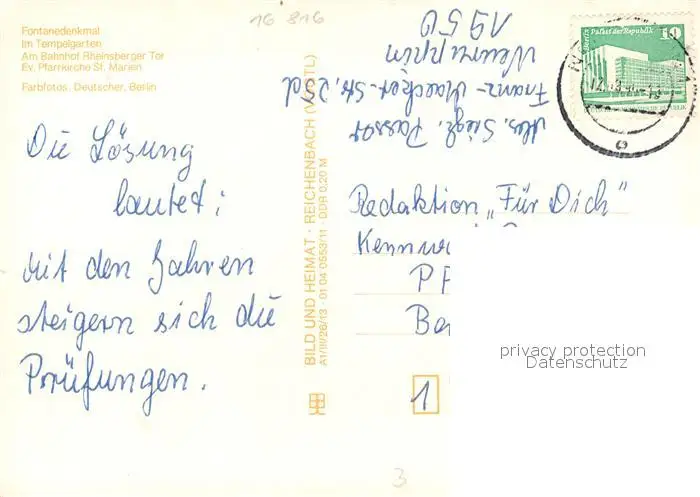 Fontanedenkmal
Im Tempelgarten
Am Bahnhof Rheinsberger Tor
Ev. Pfarrkirche St. Marien
Farbfotos: Deutscher, Berlin
16 816
Die Lösung
lautet:
Mit den Jahren
steigern sich die
Prüfungen.
BILD UND HEIMAT · REICHENBACH (VOGTL)
A1/III/26/13 · 01 04 0553/11 · DDR 0,20 M
Abs. Siegl.
Franz-Maecker-Str. 25d
Neuruppin
1950
Berlin Palast der Republik
10
Redaktion „Für Dich"
Kennw
PF
Be
1
3
privacy protection
Datenschutz